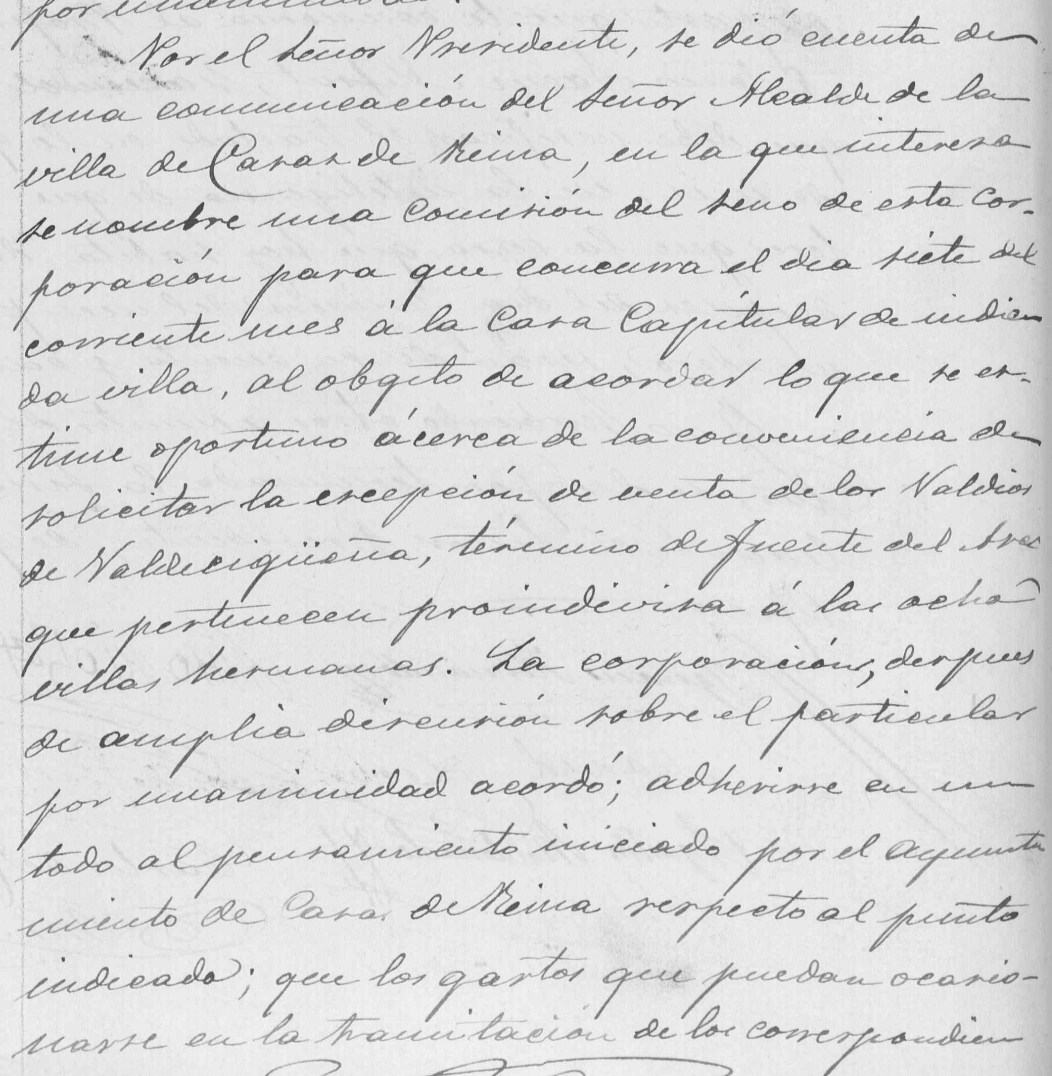 por unanimidad.
Por el Señor Presidente, se dió cuenta de
una comunicación del Señor Alcalde de la
villa de Casas de Reina, en la que interesa
se nombre una Comisión del seno de esta Cor-
poración para que concurra el dia siete del
corriente mes á la Casa Capitular de indica
da villa, al obgeto de acordar lo que se es-
time oportuno ácerca de la conveniencia de
solicitar la escepción de venta de los Valdios
de Valdecigüeña, término de Fuente del Arco
que pertenecen proindivisa á las ocho
villas hermanas. La corporación, despues
de amplia discusión sobre el particular
por unanimidad acordó; adherirse en un
todo al pensamiento iniciado por el ayunta
miento de Casas de Reina respecto al punto
indicado; que los gastos que puedan ocasio-
narse en la tramitación de los correspondien